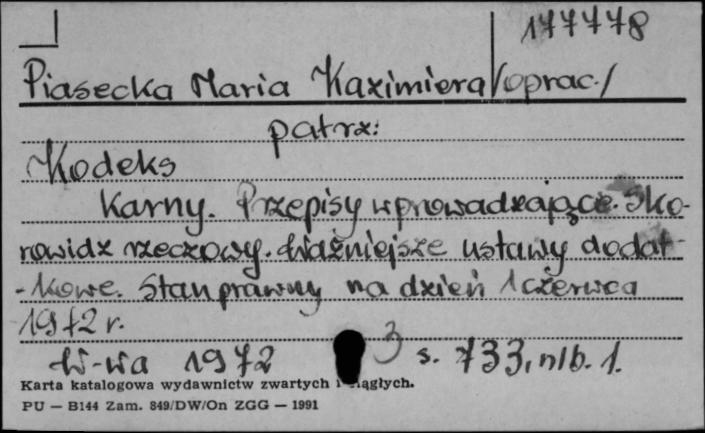 177778
Piasecka Maria Kazimiera /oprac./
patrz:
Kodeks
Karny. Przepisy wprowadzające. Sko-
rowidz rzeczowy. Ważniejsze ustawy dodat-
-kowe. Stan prawny na dzień 1 czerwca
1972 r.
W-wa 1972 3 s. 733, nlb. 1.
Karta katalogowa wydawnictw zwartych i ciągłych.
PU — B144 Zam. 849/DW/On ZGG — 1991